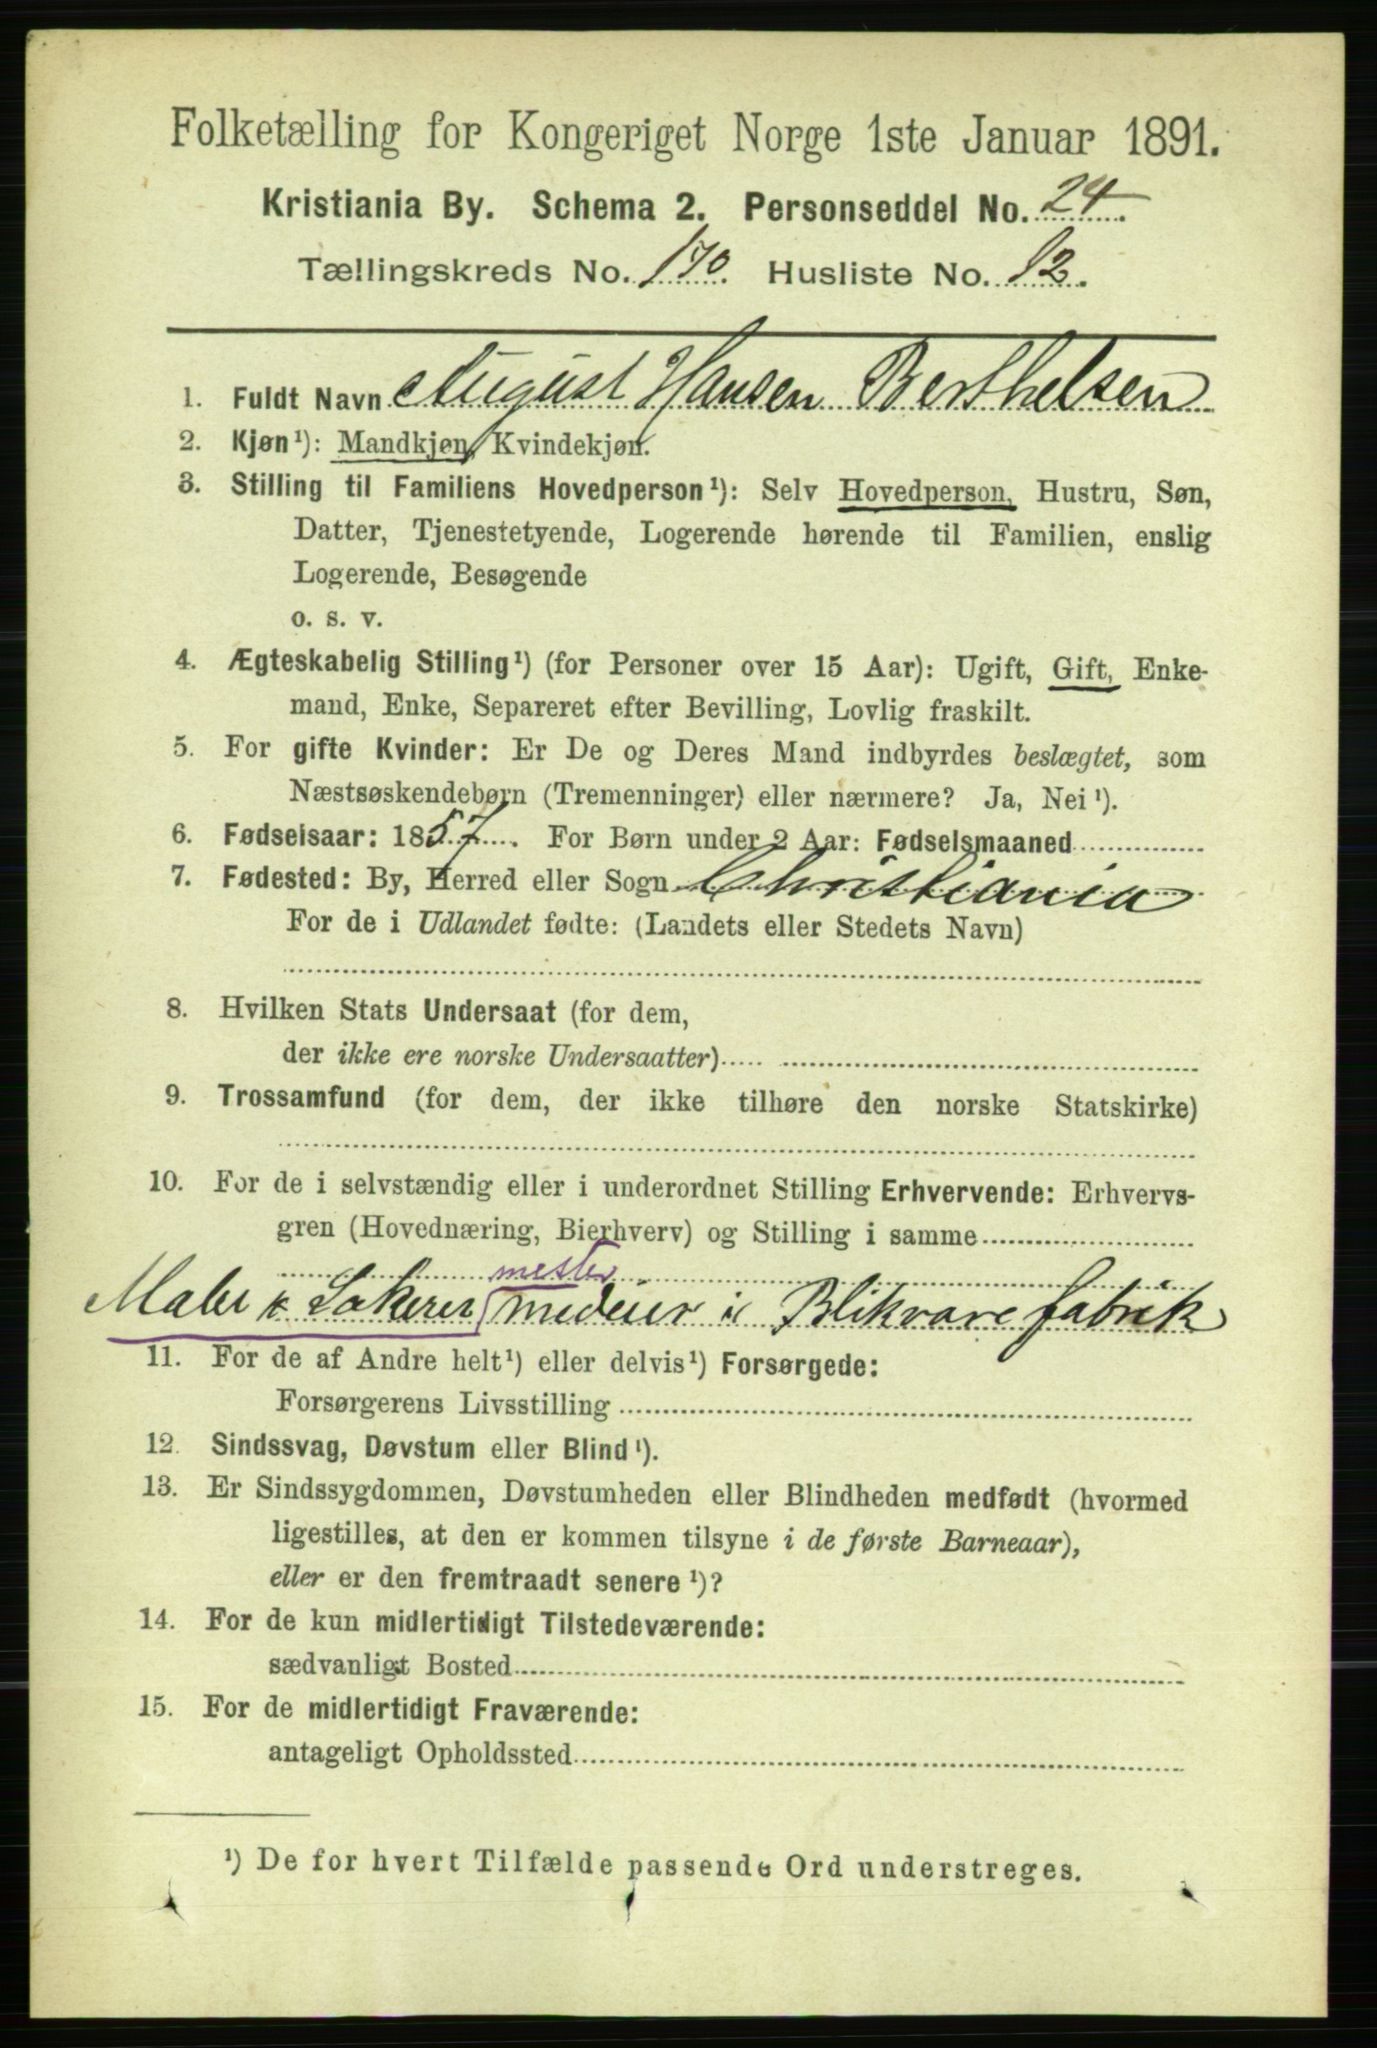 Folketælling for Kongeriget Norge 1ste Januar 1891.
Kristiania By. Schema 2. Personseddel No. 24
Tællingskreds No. 170. Husliste No. 12.
1. Fuldt Navn August Hansen Berthelsen
2. Kjøn¹): Mandkjøn, Kvindekjøn.
3. Stilling til Familiens Hovedperson¹): Selv Hovedperson, Hustru, Søn,
Datter, Tjenestetyende, Logerende hørende til Familien, enslig
Logerende, Besøgende
o. s. v.
4. Ægteskabelig Stilling¹) (for Personer over 15 Aar): Ugift, Gift, Enke-
mand, Enke, Separeret efter Bevilling, Lovlig fraskilt.
5. For gifte Kvinder: Er De og Deres Mand indbyrdes beslægtet, som
Næstsøskendebørn (Tremenninger) eller nærmere? Ja, Nei¹).
6. Fødselsaar: 1857. For Børn under 2 Aar: Fødselsmaaned
7. Fødested: By, Herred eller Sogn Christiania
For de i Udlandet fødte: (Landets eller Stedets Navn)
8. Hvilken Stats Undersaat (for dem,
der ikke ere norske Undersaatter)
9. Trossamfund (for dem, der ikke tilhøre den norske Statskirke)
10. For de i selvstændig eller i underordnet Stilling Erhvervende: Erhvervs-
gren (Hovednæring, Bierhverv) og Stilling i samme
mester
Maler & Lakerer medeier i Blikvarefabrik
11. For de af Andre helt¹) eller delvis¹) Forsørgede:
Forsørgerens Livsstilling
12. Sindssvag, Døvstum eller Blind¹).
13. Er Sindssygdommen, Døvstumheden eller Blindheden medfødt (hvormed
ligestilles, at den er kommen tilsyne i de første Barneaar),
eller er den fremtraadt senere¹)?
14. For de kun midlertidigt Tilstedeværende:
sædvanligt Bosted
15. For de midlertidigt Fraværende:
antageligt Opholdssted
¹) De for hvert Tilfælde passende Ord understreges.